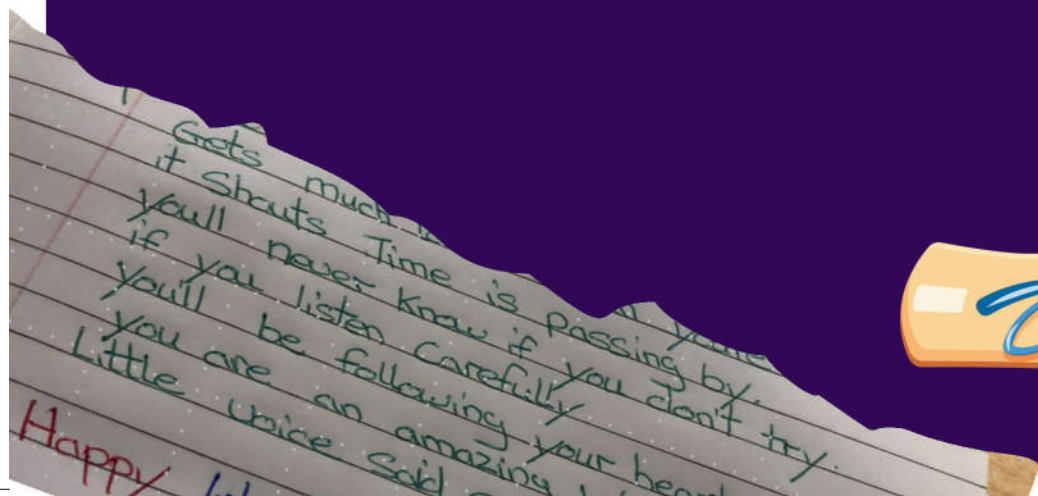 Gets much
it Shouts Time is passing by.
youll never know if you don't try.
if you listen carefully
you'll be following your heart
you are an amazing
Little voice said
Happy